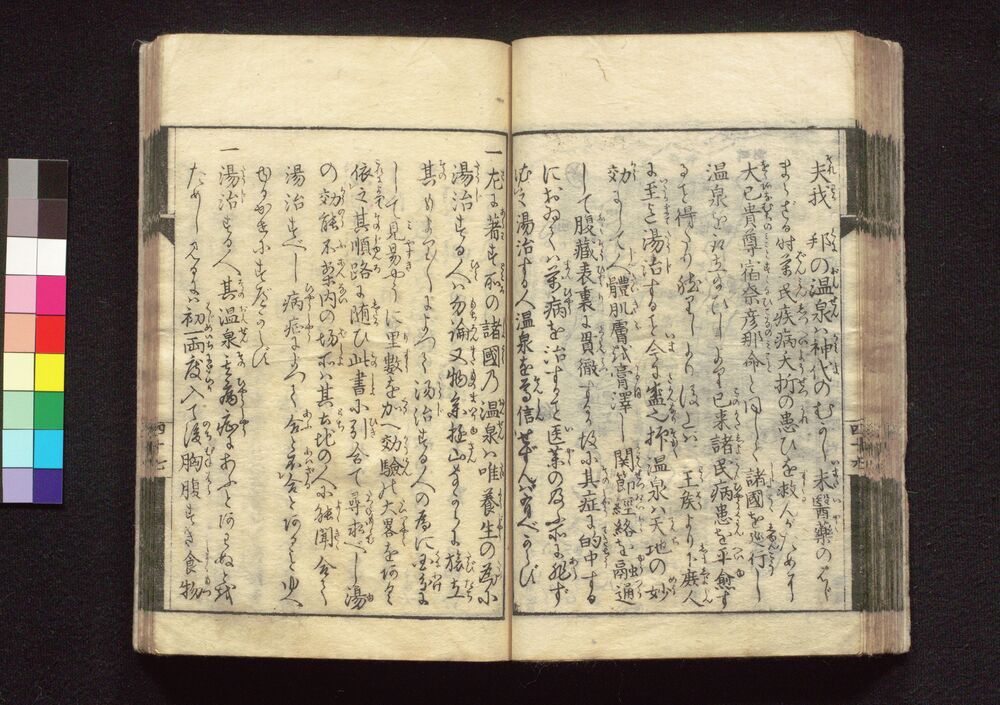 夫我　邦の温泉ハ神代のむかし未醫藥のはじ
まらざる時萬民疾病夭折の患ひを救ハんがため
大已貴尊宿奈彦那命と同じく諸國を巡行し
温泉を
已来諸民病患を平愈す
る事を得たり
王族より下庶人
に至まで湯治する事今に盛也抑温泉ハ天地の妙
効にして人體肌膚を膏澤し関節経絡を融通
して腹蔵表裏に貫徹するが故に其症に的中する
においてハ萬病を治する事医薬の及ぶ所に非ず
むべ湯治する人温泉を尊信せずんバ有べからず
一左に著す所の諸國乃温泉ハ唯養生の為に
湯治する人ハ勿論又物参遊山ながらに旅立
其もよりによつて湯治する人の為に
して見易やうに里數をかへ効驗の大畧を
依之其順路に随ひ此書に引合て尋求べし湯
の効能不案内の場所ハ其土地の人に能聞合て
湯治すべし病症によつて合と不合とあることゆへ
ゆるがせにすべからず
一湯治する人其温泉我病症にあふとあハぬを
ためし見るにハ初一両度入て後胸腹すき食物
四十七